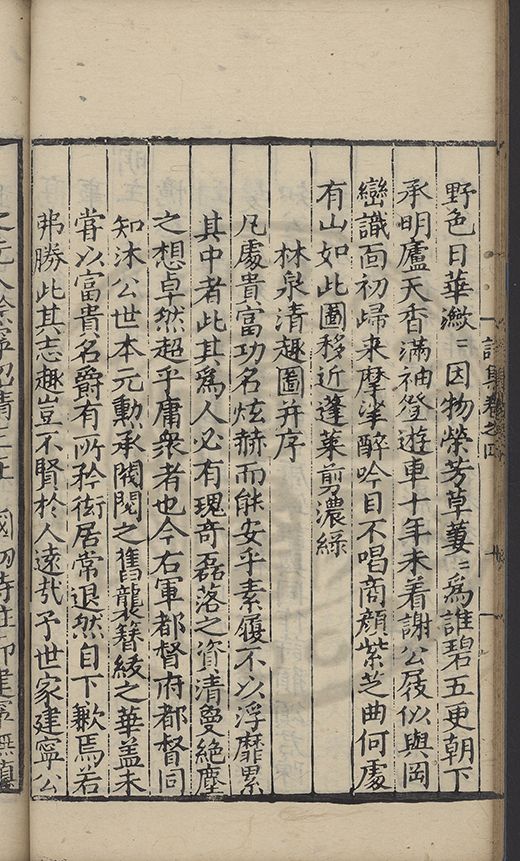 野色日華瀲〻因物榮芳草萋〻爲誰碧五更朝下
承明廬天香滿袖登遊車十年未着謝公屐似與岡
巒識面初歸来摩挲醉吟目不唱商顔紫芝曲何處
有山如此圖移近蓬莱剪濃綠
林泉清趣圖并序
凡處貴富功名炫赫而能安乎素履不以浮靡累
其中者此其爲人必有瑰竒磊落之資清曼絶塵
之想卓然超乎庸衆者也今右軍都督府都督同
知沐公世本元勳承閥閱之舊襲簪綬之華盖未
甞以富貴名爵有所矜衒居常退然自下歉焉若
弗勝此其志趣豈不賢於人遠哉予世家建寧公
詩集卷之四